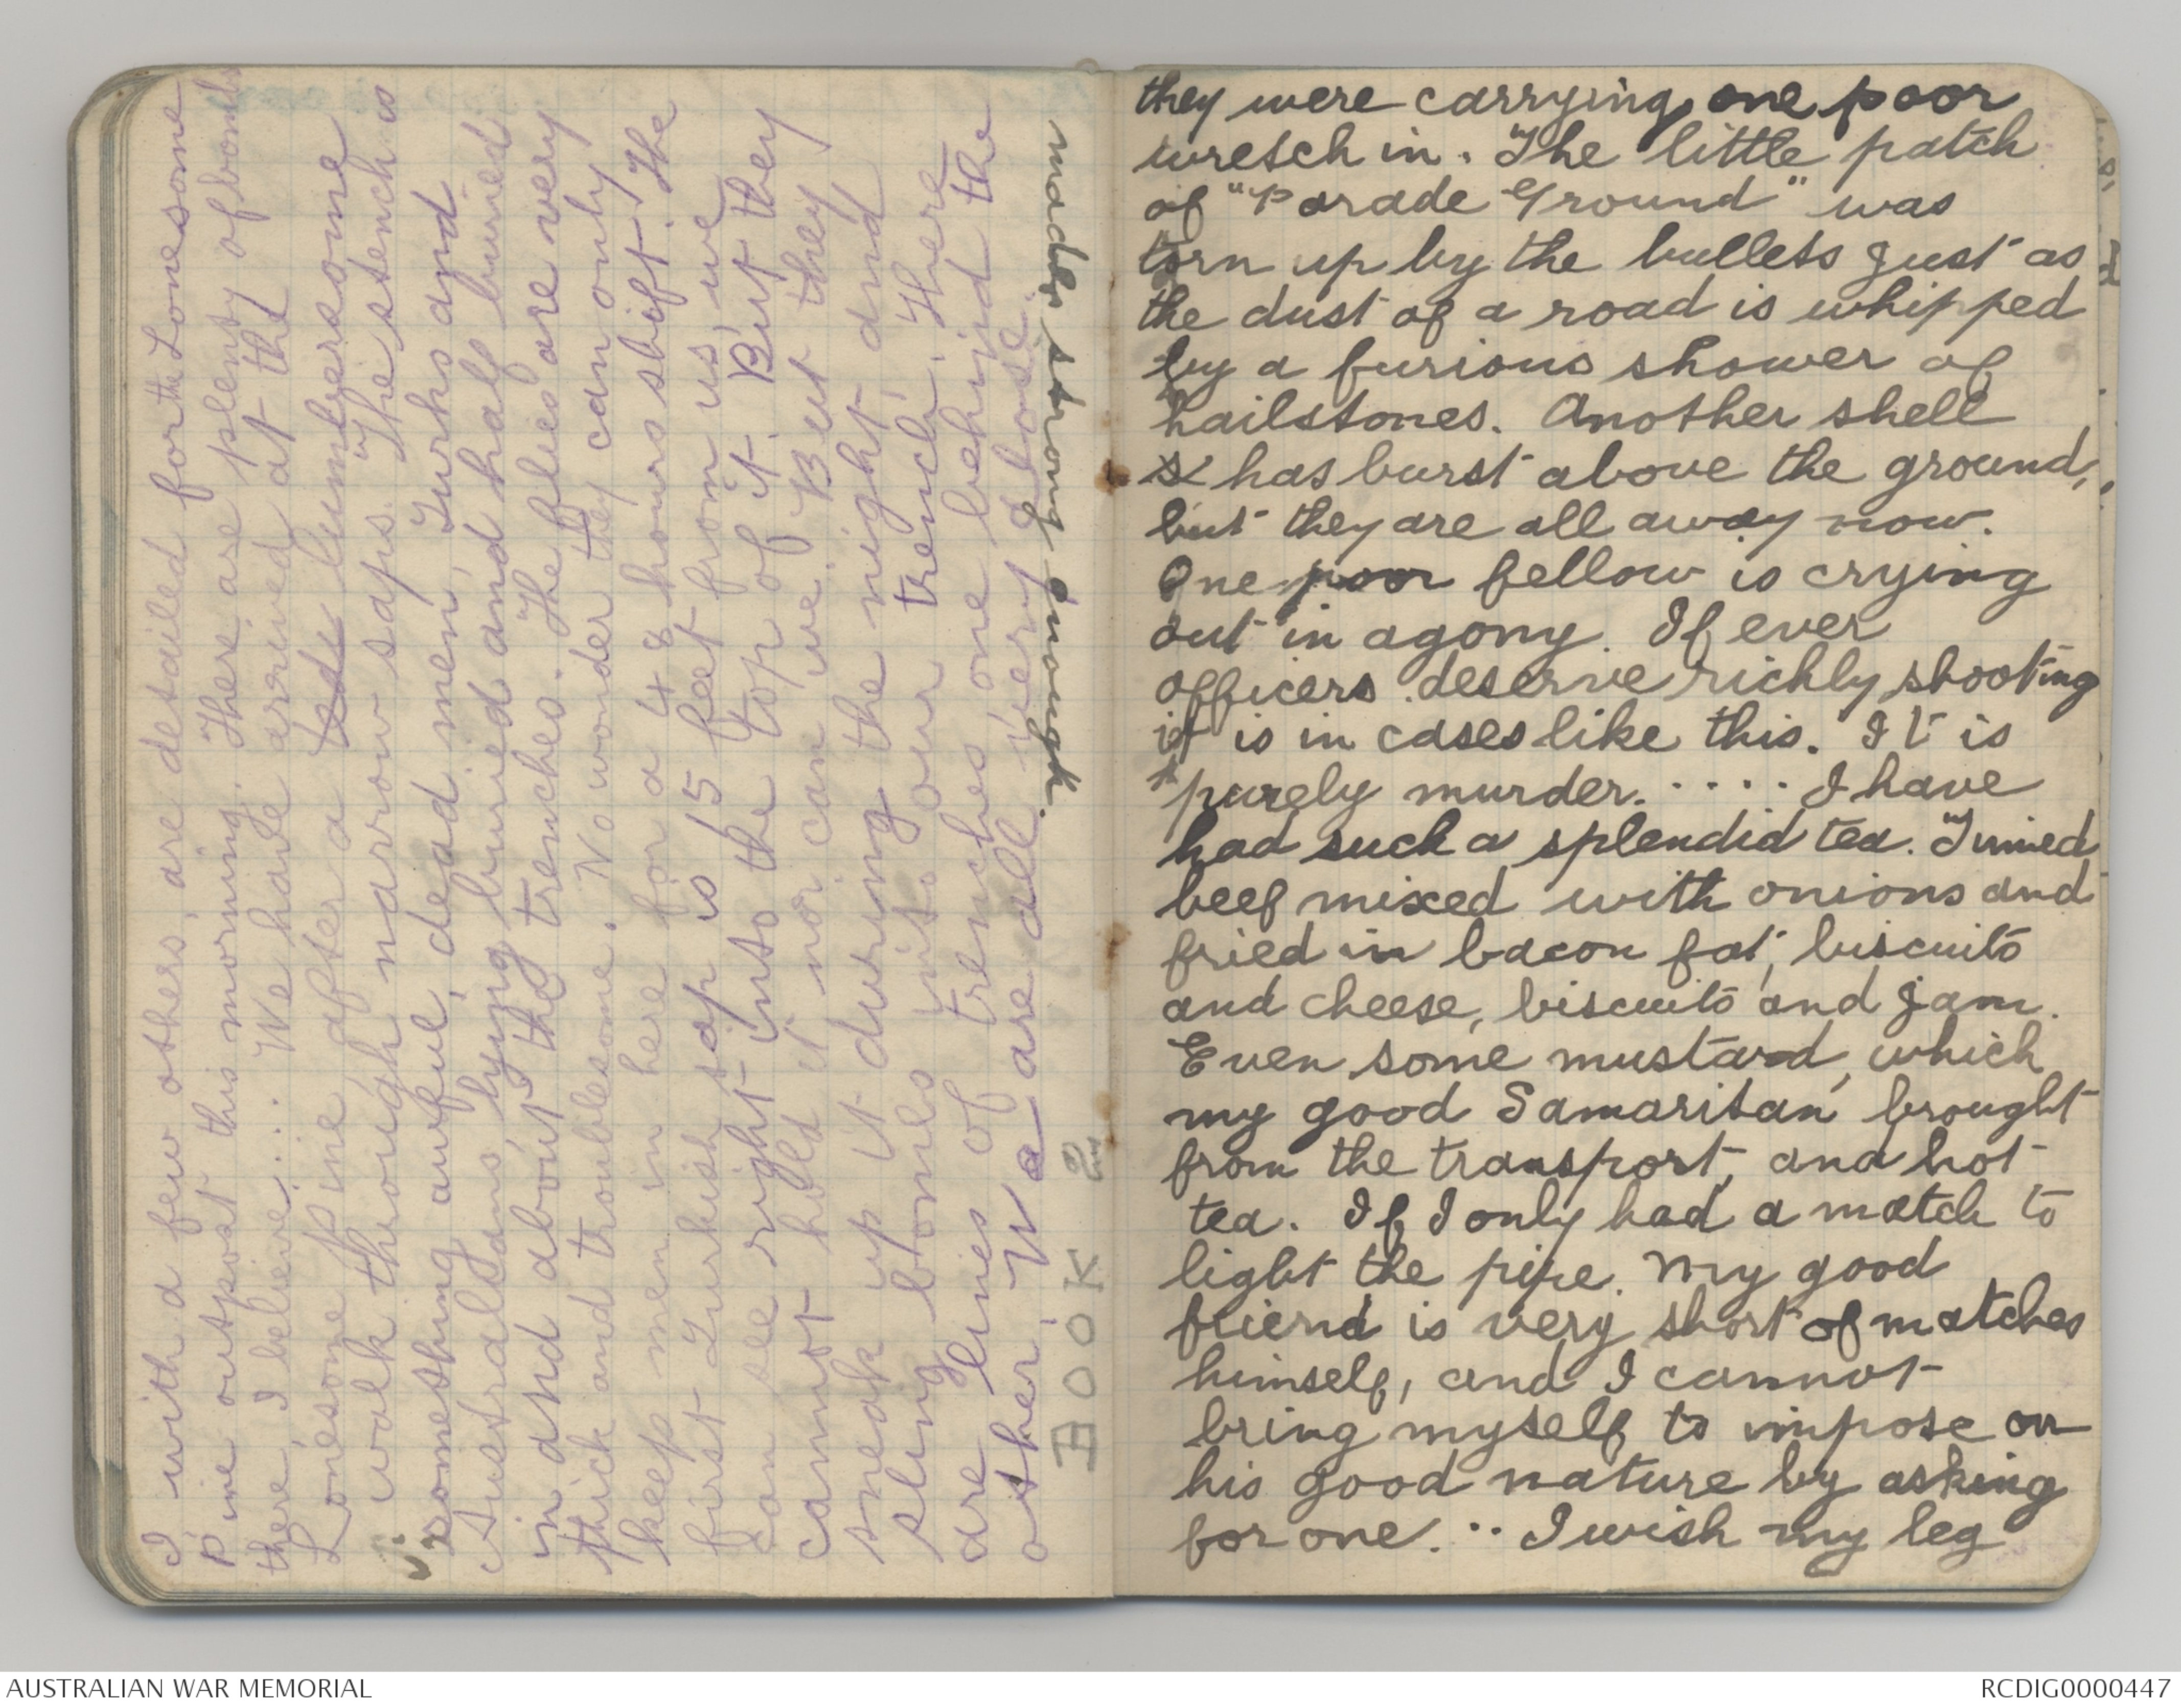 I with a few others, are detailed for the Lonesome
Pine outpost this morning. There are plenty of bombs
there, I believe.... We have arrived at the
Lonesome Pine after a teds lumbersome
walk through narrow saps. The stench is
something awful, dead men, Turks and
Australians, lying buried and half buried
in and about the trenches. The flies are very
thick and troublesome. No wonder they can only
keep men in here for a 48 hours shift. The
first Turkish sap is 15 feet from us, we
can see right into the top of it. But they
cannot hold it nor can we. But they
sneak up it during the night and
sling bombs into our trench. There
are lines of trenches one behind the
other. We are all very close.
made strong enough.
BOOK 2
they were carrying one poor
wretch in. The little patch
of "Parade Ground" was
torn up by the bullets just as
the dust of a road is whipped
by a furious shower of
hailstones. Another shell
s has burst above the ground,
but they are all away now.
One poor fellow is crying
out in agony. If ever
officers deserve richly shooting
it is in cases like this. It is
purely murder..... I have
had such a splendid tea. Tinned
beef mixed with onions and
fried in bacon fat, biscuits
and cheese, biscuits and jam.
Even some mustard, which
my good Samaritan brought
from the transport, and hot
tea. If I only had a match to
light the pipe. My good
friend is very short of matches
himself, and I cannot
bring myself to impose on
his good nature by asking
for one... I wish my leg
AUSTRALIAN WAR MEMORIAL
RCDIG0000447